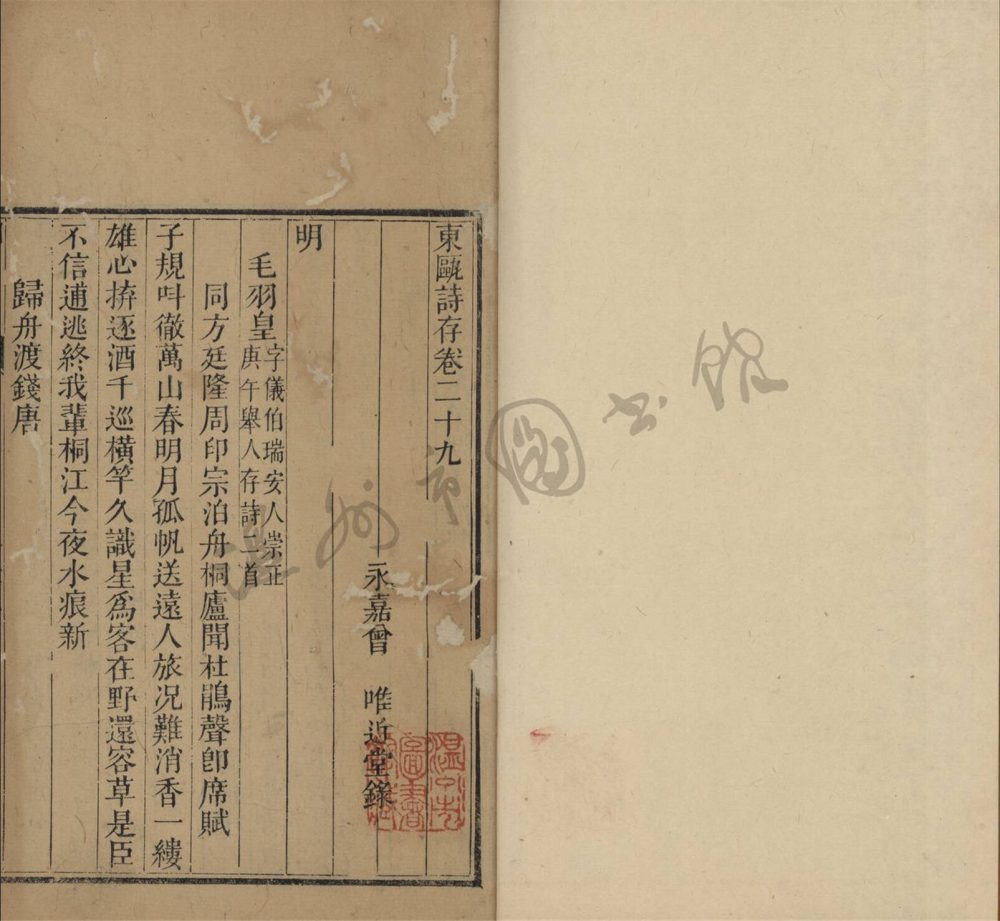 東甌詩存卷二十九
永嘉曾 唯近堂錄
明
毛羽皇字儀伯瑞安人崇正
庚午舉人存詩二首
同方廷隆周印宗泊舟桐廬聞杜鵑聲卽席賦
子規呌徹萬山春明月孤帆送遠人旅况難消香一縷
雄心拚逐酒千巡橫竿久識星爲客在野還容草是臣
不信逋逃終我輩桐江今夜水痕新
歸舟渡錢唐
溫州市圖書館
溫州市
圖書
館藏